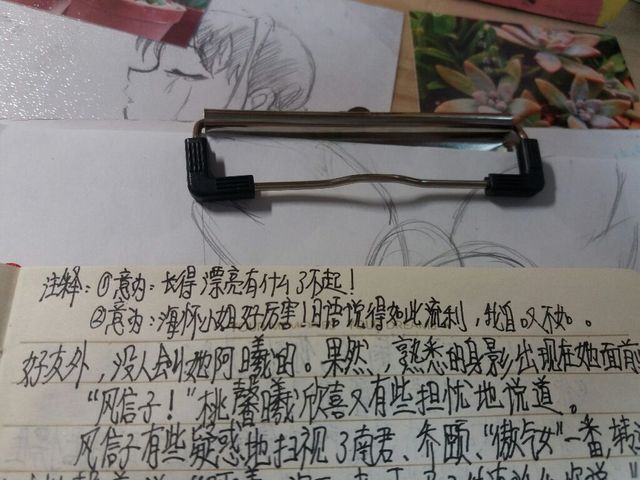 注释：①意为：长得漂亮有什么了不起！
②意为：海怀小姐好厉害！日语说得如此流利，我自叹不如。
好友外，没人会叫她阿曦的。果然，熟悉的身影出现在她面前
“风信子！”桃馨曦欣喜又有些担忧地说道。
风信子有些疑惑地扫视了南君、乔颐、“傲气女”一番，